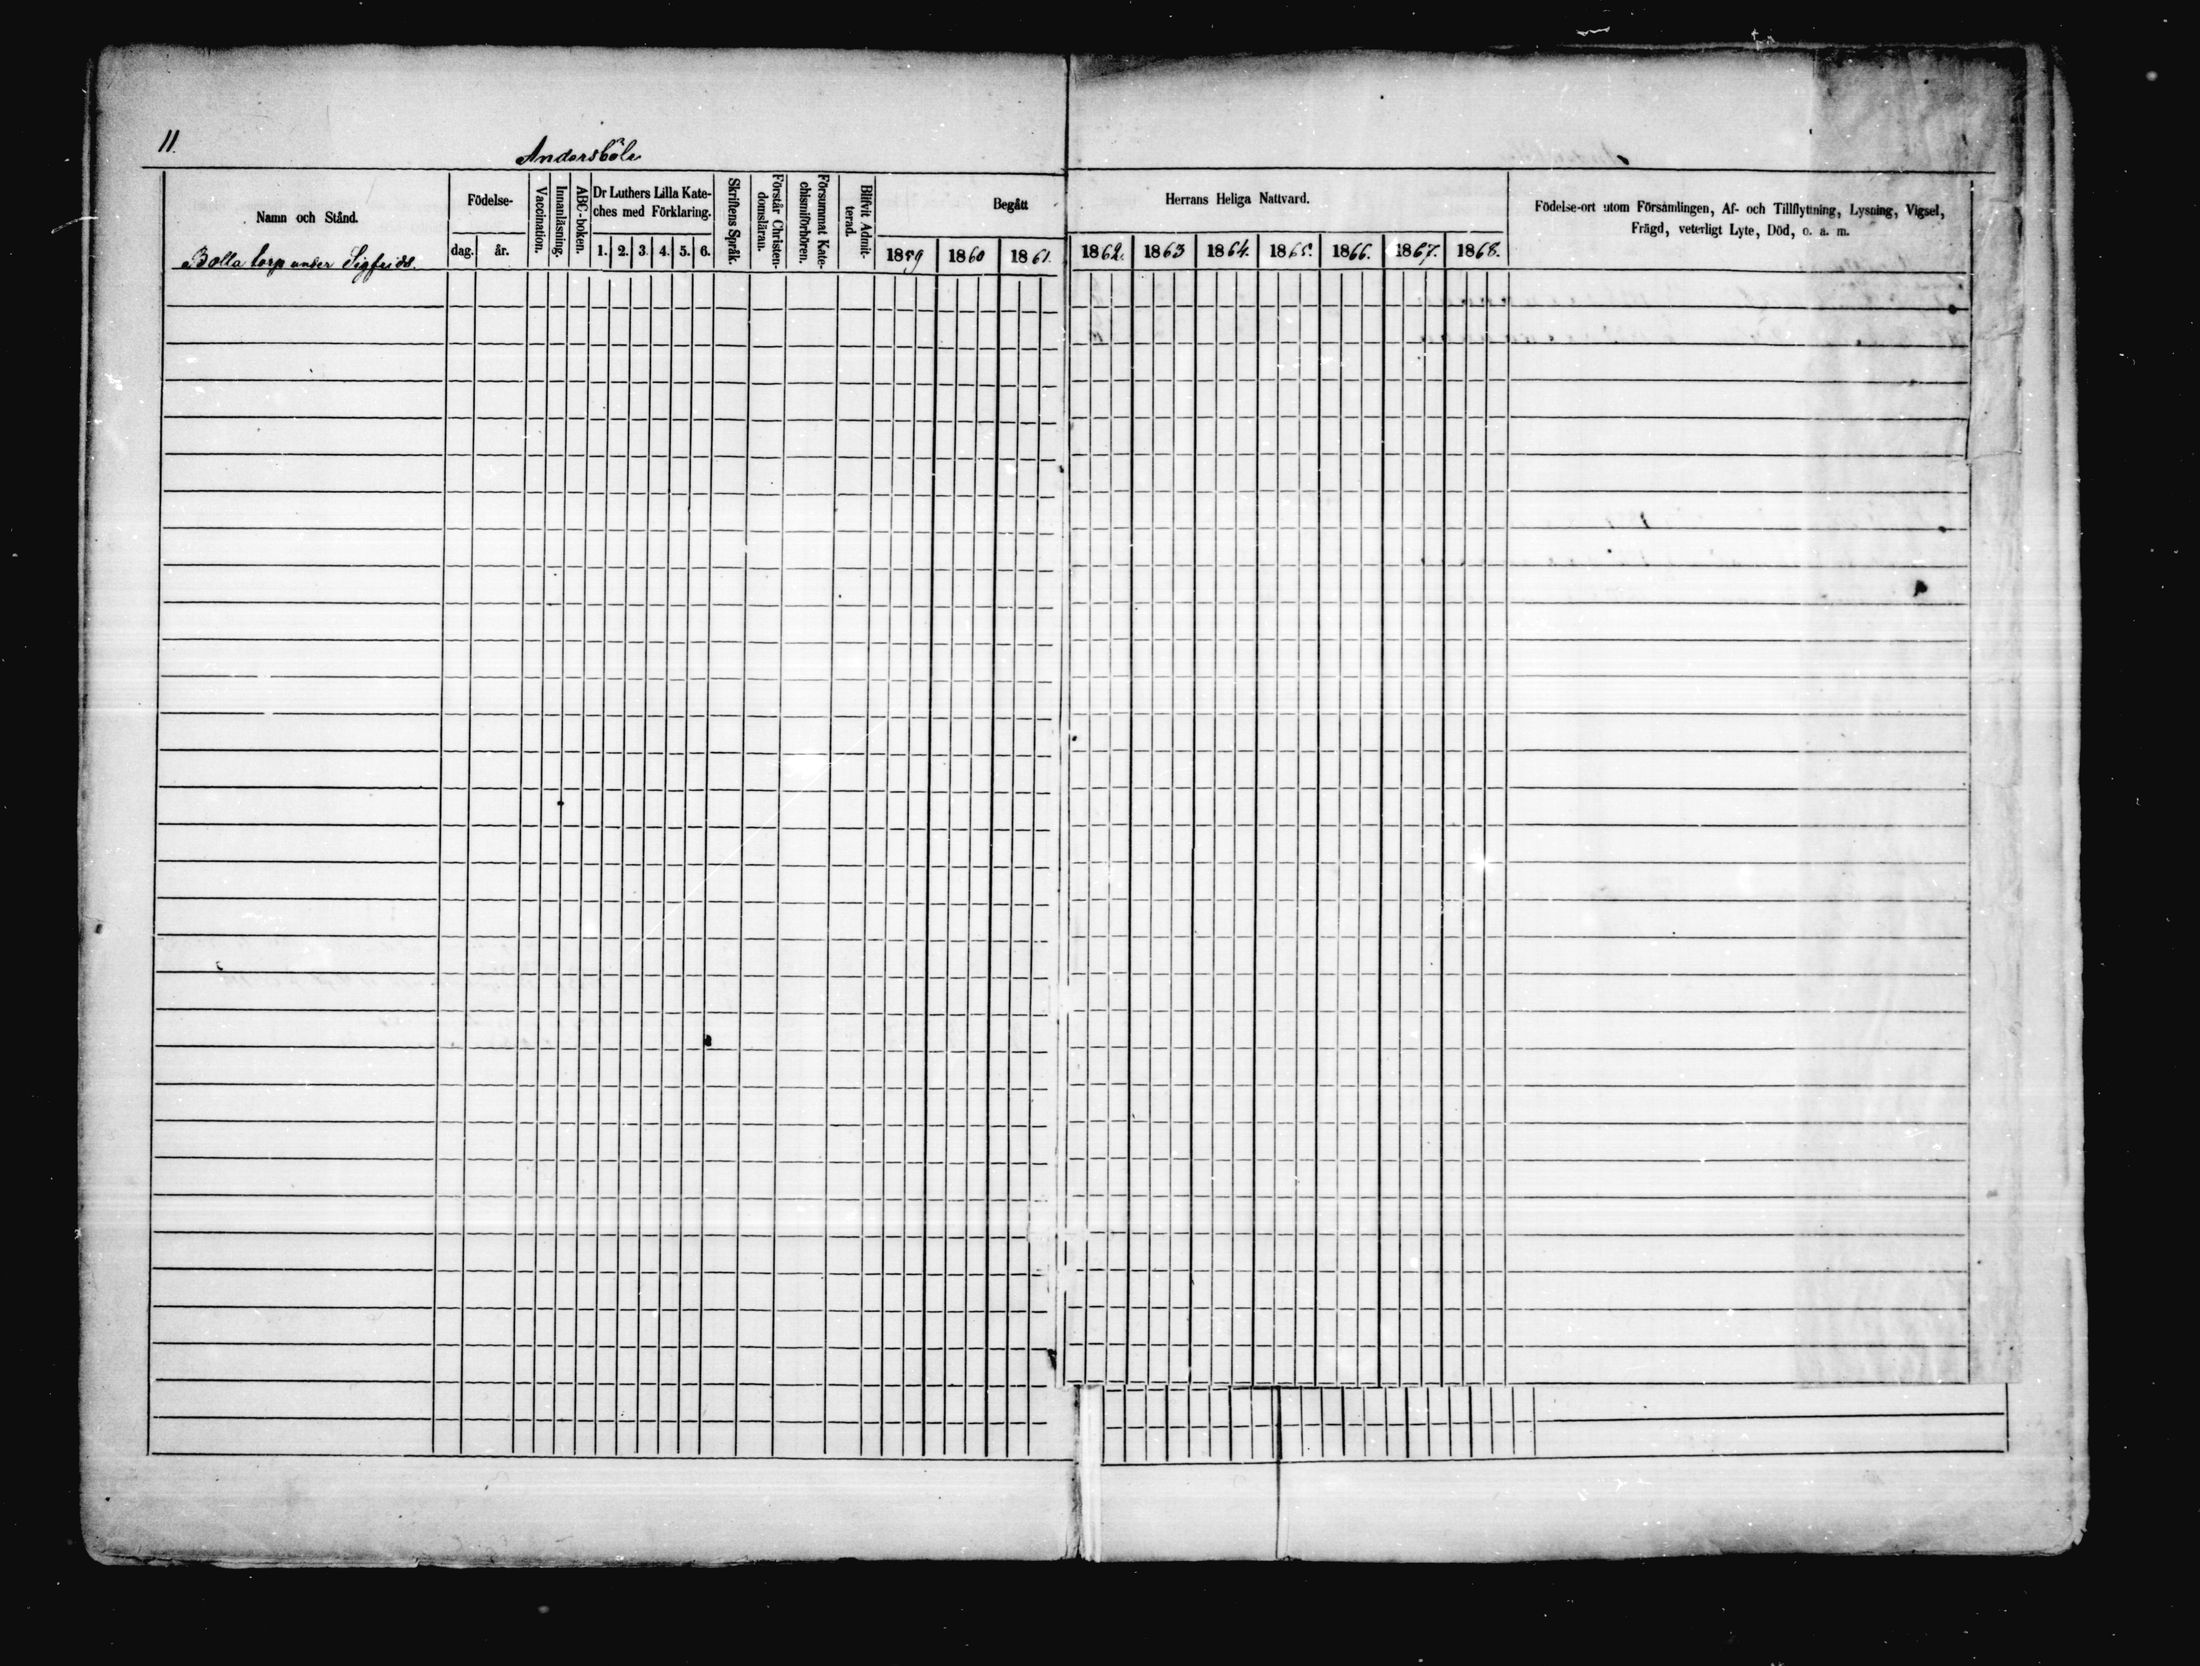 11.
Andersböle
Namn och Stånd.
Födelse-
dag.
år.
Vaccination.
Innanläsning.
ABC-boken.
Dr Luthers Lilla Kate-
ches med Förklaring.
1. 2. 3. 4. 5. 6.
Skriftens Språk.
Förstår Christen-
domsläran.
Försummat Kate-
chismiförhören.
Blifvit Admit-
terad.
Begått
Herrans Heliga Nattvard.
1859 1860 1861. 1862. 1863 1864. 1865. 1866. 1867. 1868.
Födelse-ort utom Församlingen, Af- och Tillflyttning, Lysning, Vigsel,
Frägd, veterligt Lyte, Död, o. a. m.
Bolla torp under Sigfrids.